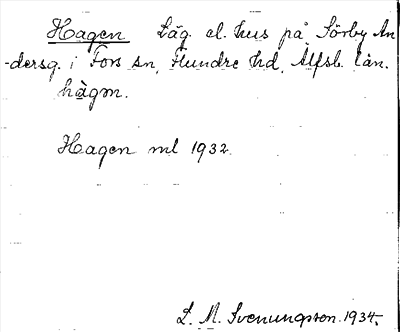 Hagen Läg. el. hus på Sörby An
-dersg. i Fors sn, Flundre hd, Älfsb. län.
hàgɐn.
Hagen ml 1932.
L. M. Svenungsson. 1934.